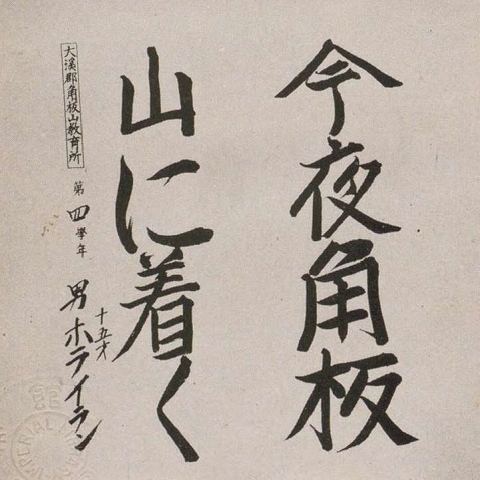 今夜角板
山に着く
大溪郡角板山教育所
第四學年
十五才
男ホライラン